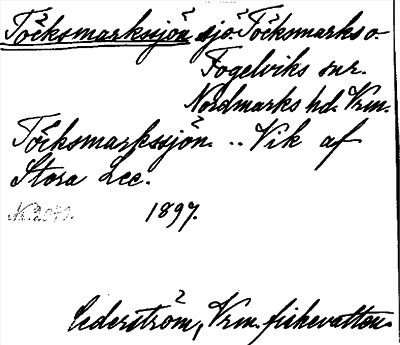 Töcksmarkssjön sjö. Töcksmarks o.
Fogelviks snr.
Nordmarks hd. Vrm.
Töcksmarkssjön. .. Vik af
Stora Lee.
1897.
Cederström, Vrm. fiskevatten.